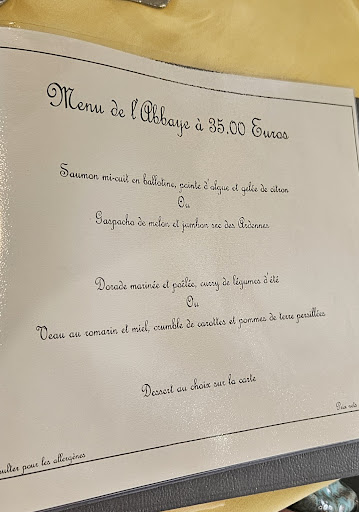 Menu de l'Abbaye à 35.00 Euros
Saumon mi-cuit en ballotine, pointe d'algue et gelée de citron
Ou
Gaspacho de melon et jambon sec des Ardennes
Dorade marinée et poêlée, curry de légumes d'été
Ou
Veau au romarin et miel, crumble de carottes et pommes de terre persillées
Dessert au choix sur la carte
Prix nets
sulter pour les allergènes